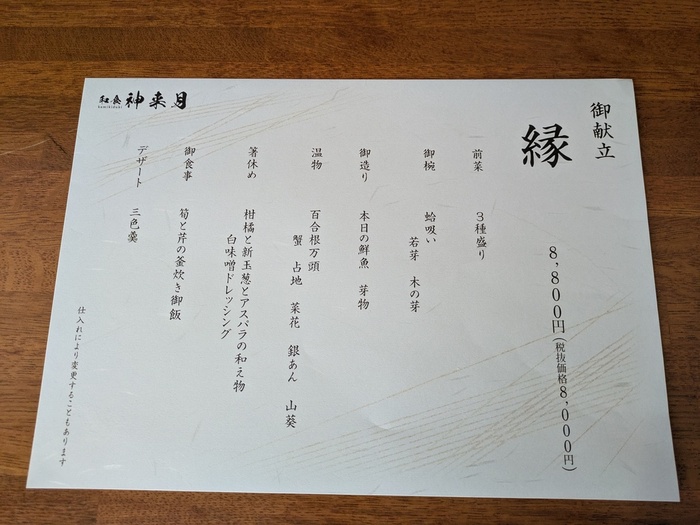 御献立
縁
8,800円(税抜価格8,000円)
前菜 3種盛り
御椀 蛤吸い
若芽 木の芽
御造り 本日の鮮魚 芽物
温物 百合根万頭
蟹 占地 菜花 銀あん 山葵
箸休め 柑橘と新玉葱とアスパラの和え物
白味噌ドレッシング
御食事 筍と芹の釜炊き御飯
デザート 三色羹
仕入れにより変更することもあります
和食 神来月